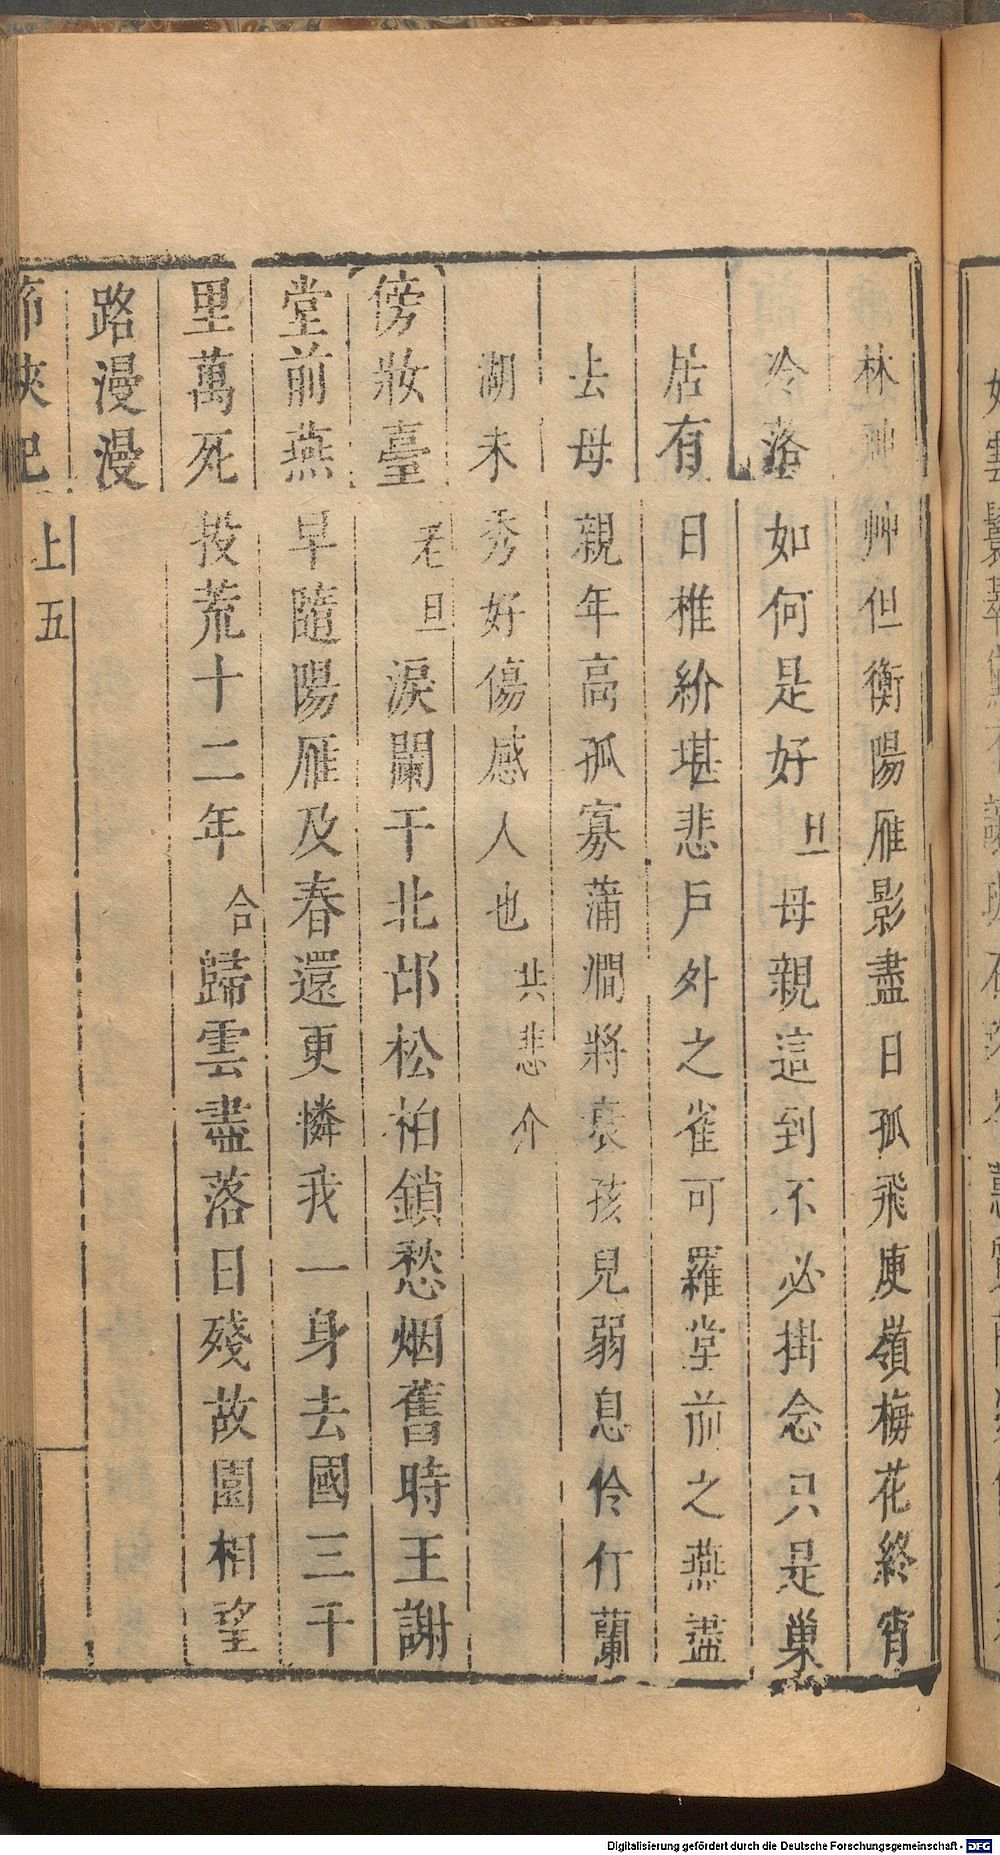 林艸艸但衡陽雁影盡日孤飛庾嶺梅花終宵
冷落如何是好旦母親這到不必掛念只是巢
居有日椎紒堪悲戶外之雀可羅堂前之燕盡
去母親年高孤寡蒲澗將衰孩兒弱息伶仃蘭
湖未秀好傷感人也共悲介
傍妝臺老旦淚闌干北邙松柏鎖愁烟舊時王謝
堂前燕早隨陽雁及春還更憐我一身去國三千
里萬死投荒十二年合歸雲盡落日殘故園相望
路漫漫
節俠記 上 五
Digitalisierung gefördert durch die Deutsche Forschungsgemeinschaft - DFG